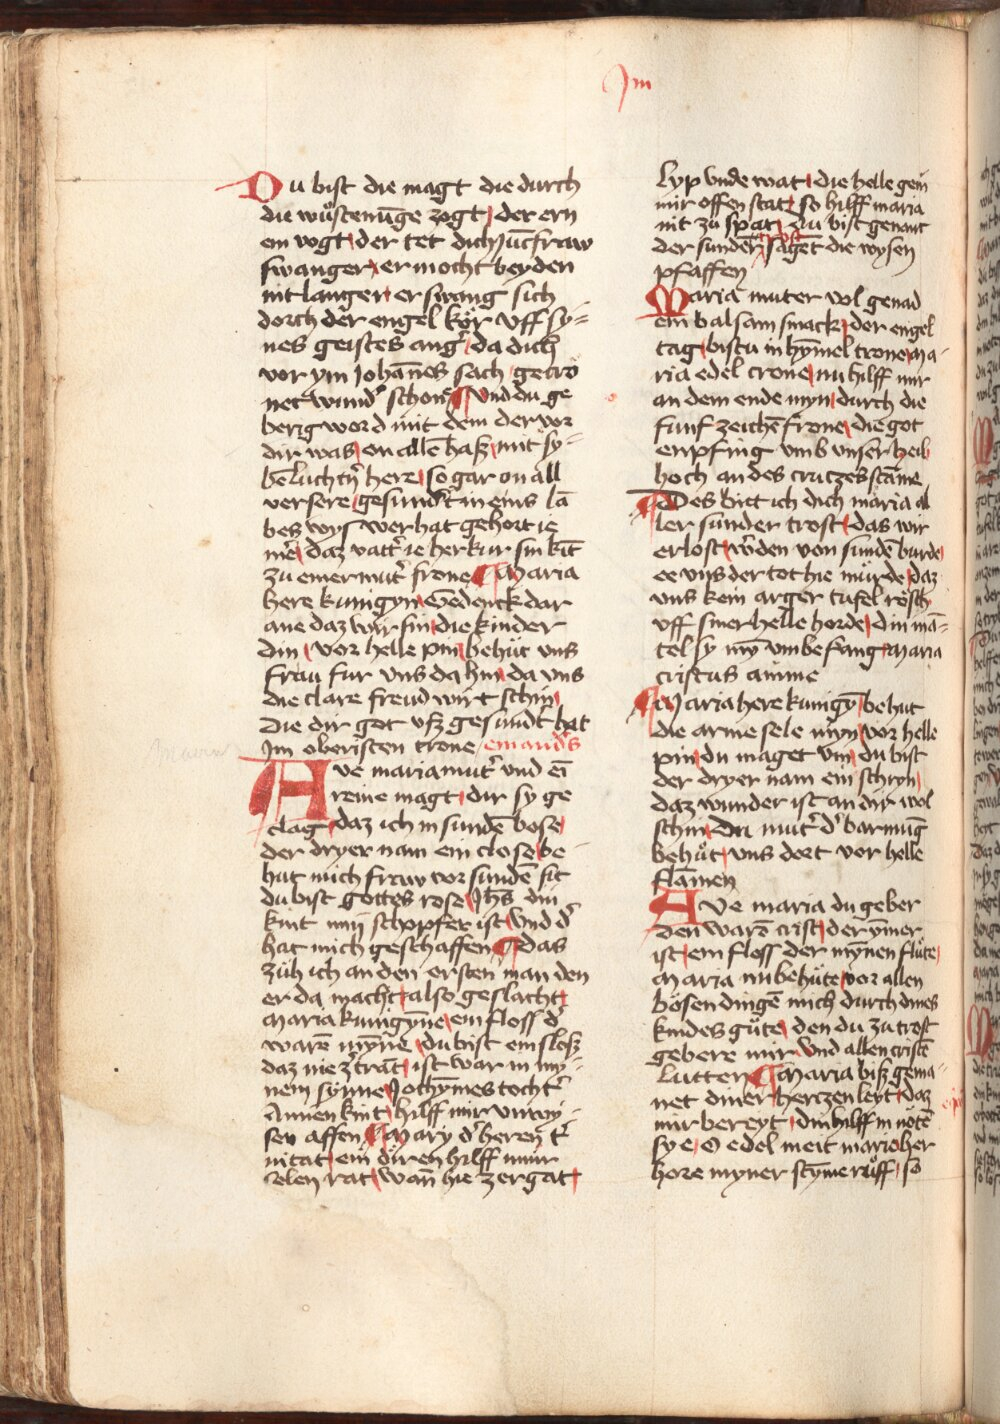 Jm
Du bist die magt die durch
du wüstenūge zogt der ern
ein vogt der tet dich jūcfraw
swanger er mocht beyden
nit langer er swang sich
dorch der engel kör vff sy=
nes geistes ang̉ da dich
vor ym johānes sach gecrö
net wund̉ schon vnd du ge
berig word mit dem der vor
dir was on allē hasz mit sy=
bē luchtn̉ here so gar on all
versere gesundt in eins lā
bes wys wer hat gehort ie
mē daz vatt̉ ie herkur sin kīt
zu einer mut̉ frone Maria
here kunigyn Gedenck dar
ane daz wir sin die kinder
din vor helle pin behüt vns
frau fur vns da hin da vns
die clare freud wirt schin
die dir got vsz gesundt hat
Jm oberisten trone emand̉s
Ave maria mut̉ vnd eī
reine magt dir sy ge
clag daz ich in sundē bose
der dryer nam ein close be
hut mich fraw vor sundē sit
du bist gottes rose Jhs̄ din
kint mij schopfer ist vnd d̉
hat mich geschaffen das
züh ich an den ersten man den
er da macht also geslacht
maria kunigȳne ein floss d̉
warē mȳne du bist ein slosz
daz nie z̉trāt ist war in my=
nem synne Jothȳmes tocht̉
Annen kint hilff mir vnwy=
sen affen Mary d̉ heren t̉i
nitat ein diren hilff mir
selen rat wan̄ hie zergat
lyp vnde wat die helle gein
mir offen stat so hilff maria
nit zu spat du bist genant
der sunder trost saget die wysen
pfaffen
Maria muter vol genad
ein balsam smack der engel
tag bistu in hȳmel trone ma=
ria edel crone nu hilff mir
an dem ende myn durch die
funf zeichē frone die got
enpfing vmb vnser heil
hoch an des crutzes stāme
Des bitt ich dich maria al
ler sunder trost das wir
erlost w̉den von sundē burde
ee vns der tot hie mürde daz
vns kein arger tufel rösch
vff siner helle horde din mā=
tel sy mȳ vmbefang maria
cristus amme
Maria here kunigȳ behut
die arme sele myn vor helle
pin du maget vin du bist
der dryer nam ein schryn
daz wunder ist an dir wol
schin Du mut̉ d̉ barmūg
behüt vns dort vor helle
flāmen
Ave maria du geber
den warē crist der ȳmer
ist ein floss der mȳnen flüte
maria nu behüte vor allen
bösen dingē mich durch dines
kindes güte den du zu trost
gebere mir vnd allen cristē
lutten Maria bisz gema=
net diner hertzen leyt daz
mir bereyt din hilff in nötē
sy e O edel meit maria her
hore myner stȳme rüff so